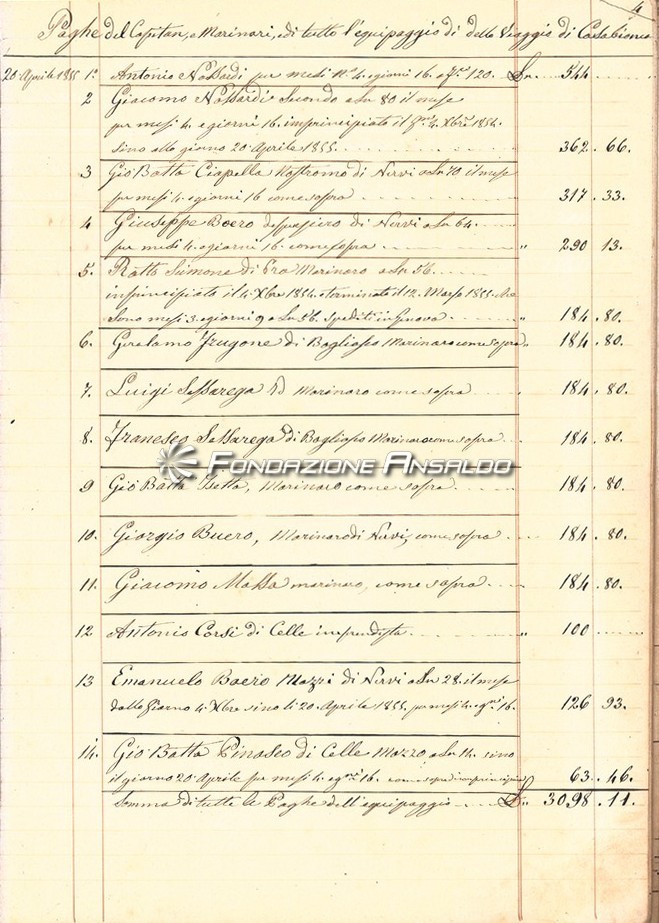 4
Paghe del Capitan, e Marinari, e di tutto l'equipaggio di detto Viaggio di Casabianca
20 Aprile 1855 1° Antonio Nassardi per mesi N° 4 e giorni 16 a 120. Ln. 544
2 Giacomo Nassardi Secondo a Ln 80 il mese
per mesi 4 e giorni 16 imprincipiato il 4 Xbre 1854
sino alle giorno 20 Aprile 1855 362. 66.
3 Gio Batta Ciapella Nostromo di Nervi a Ln 70 il mese
per mesi 4. e giorni 16 come sopra 317. 33.
4 Giuseppe Boero di Nervi a Ln 64.
per mesi 4 e giorni 16. come sopra " 290 13.
5. Ratto Simone di Pra Marinaro a Ln 56.
imprincipiato il 4 Xbre 1854. e terminato il 12. Marzo 1855
Sono mesi 3. e giorni 9 a Ln 56. spediti in Genova " 184. 80.
6. Gerolamo Frugone di Bogliasco Marinaro come sopra " 184. 80.
7. Luigi Sessarega Id Marinaro come sopra 184. 80.
8. Francesco Sessarega di Bogliasco Marinaro come sopra 184. 80.
FONDAZIONE ANSALDO
9 Gio Batta Marinaro come sopra 184. 80.
10. Giorgio Buero, Marinaro di Nervi, come sopra 184. 80.
11. Giacomo Massa marinaro, come sopra 184. 80.
12 Antonio Corsi di Celle " 100
13 Emanuelo Boero Mozzi di Nervi a Ln 28. il mese
dallo Giorno 4. Xbre sino li 20. Aprile 1855, per mesi 4. e gni 16. 126 93.
14. Gio Batta Pinasco di Celle Mozzo a Ln 14. sino
il giorno 20 Aprile per mesi 4. e gni 16. come sopra 63. 46.
Somma di tutte le Paghe dell'equipaggio Ln. 3098. 11.